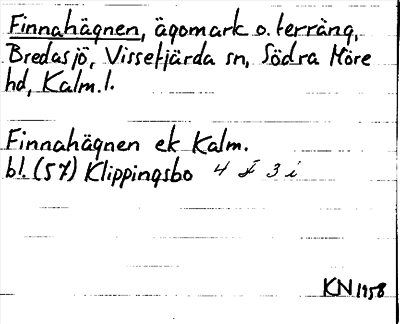 Finnahägnen, ägomark o. terräng,
Bredasjö, Vissefjärda sn, Södra Möre
hd, Kalm. l.
Finnahägnen ek Kalm.
bl. (57) Klippingsbo 4 F 3 i
KN 1958